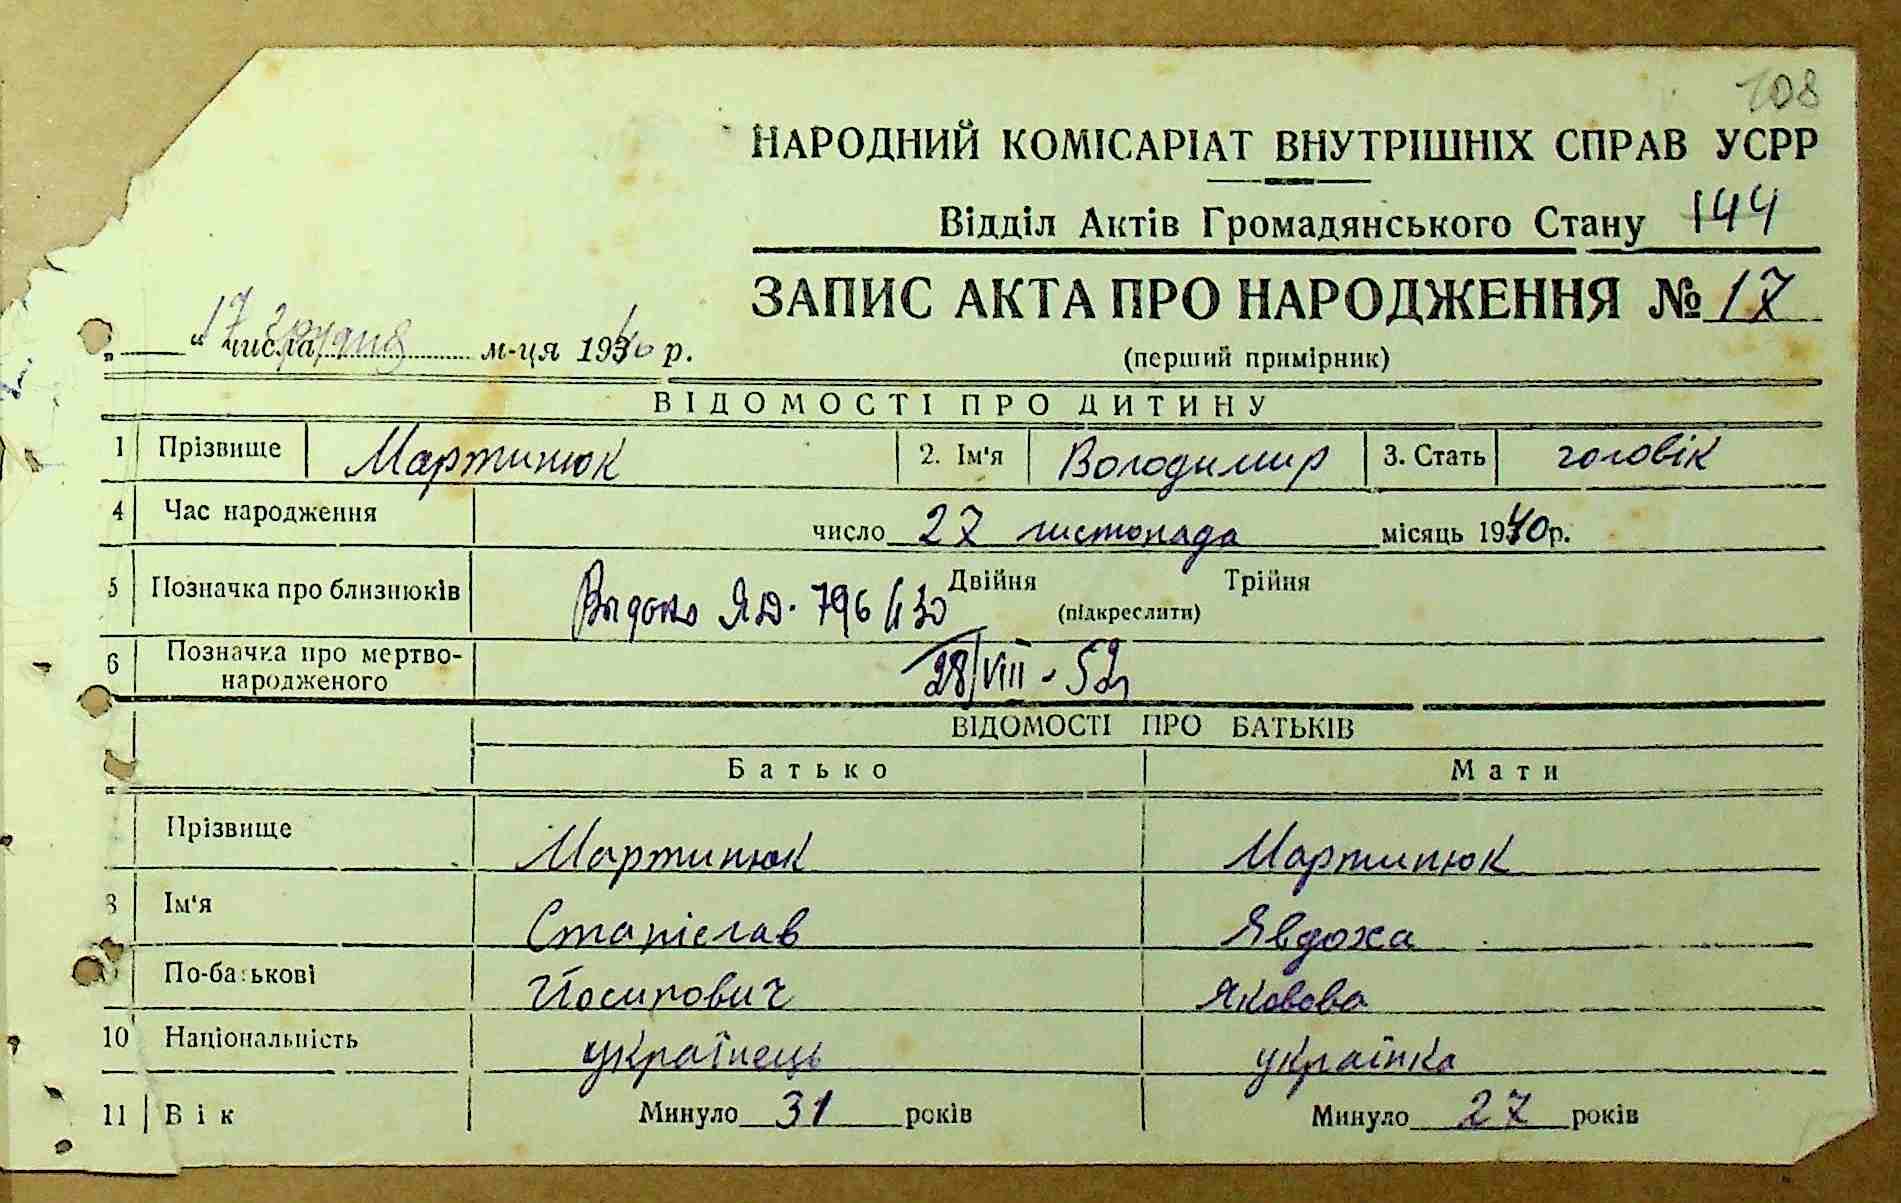 108
НАРОДНИЙ КОМІСАРІАТ ВНУТРІШНІХ СПРАВ УСРР
Відділ Актів Громадянського Стану 144
ЗАПИС АКТА ПРО НАРОДЖЕННЯ № 17
„ 17 “ числа грудня м-ця 1940 р.
(перший примірник)
ВІДОМОСТІ ПРО ДИТИНУ
1 Прізвище Мартинюк 2. Ім'я Володимир 3. Стать чоловік
4 Час народження число 27 листопада місяць 1940 р.
5 Позначка про близнюків Двійня Трійня
(підкреслити)
Выдано ЯД. 796430
6 Позначка про мертво-
народженого
28/VIII - 52
ВІДОМОСТІ ПРО БАТЬКІВ
Батько Мати
Прізвище Мартинюк Мартинюк
8 Ім'я Станіслав Явдоха
По-батькові Йосипович Яковова
10 Національність українець українка
11 Вік Минуло 31 років Минуло 27 років